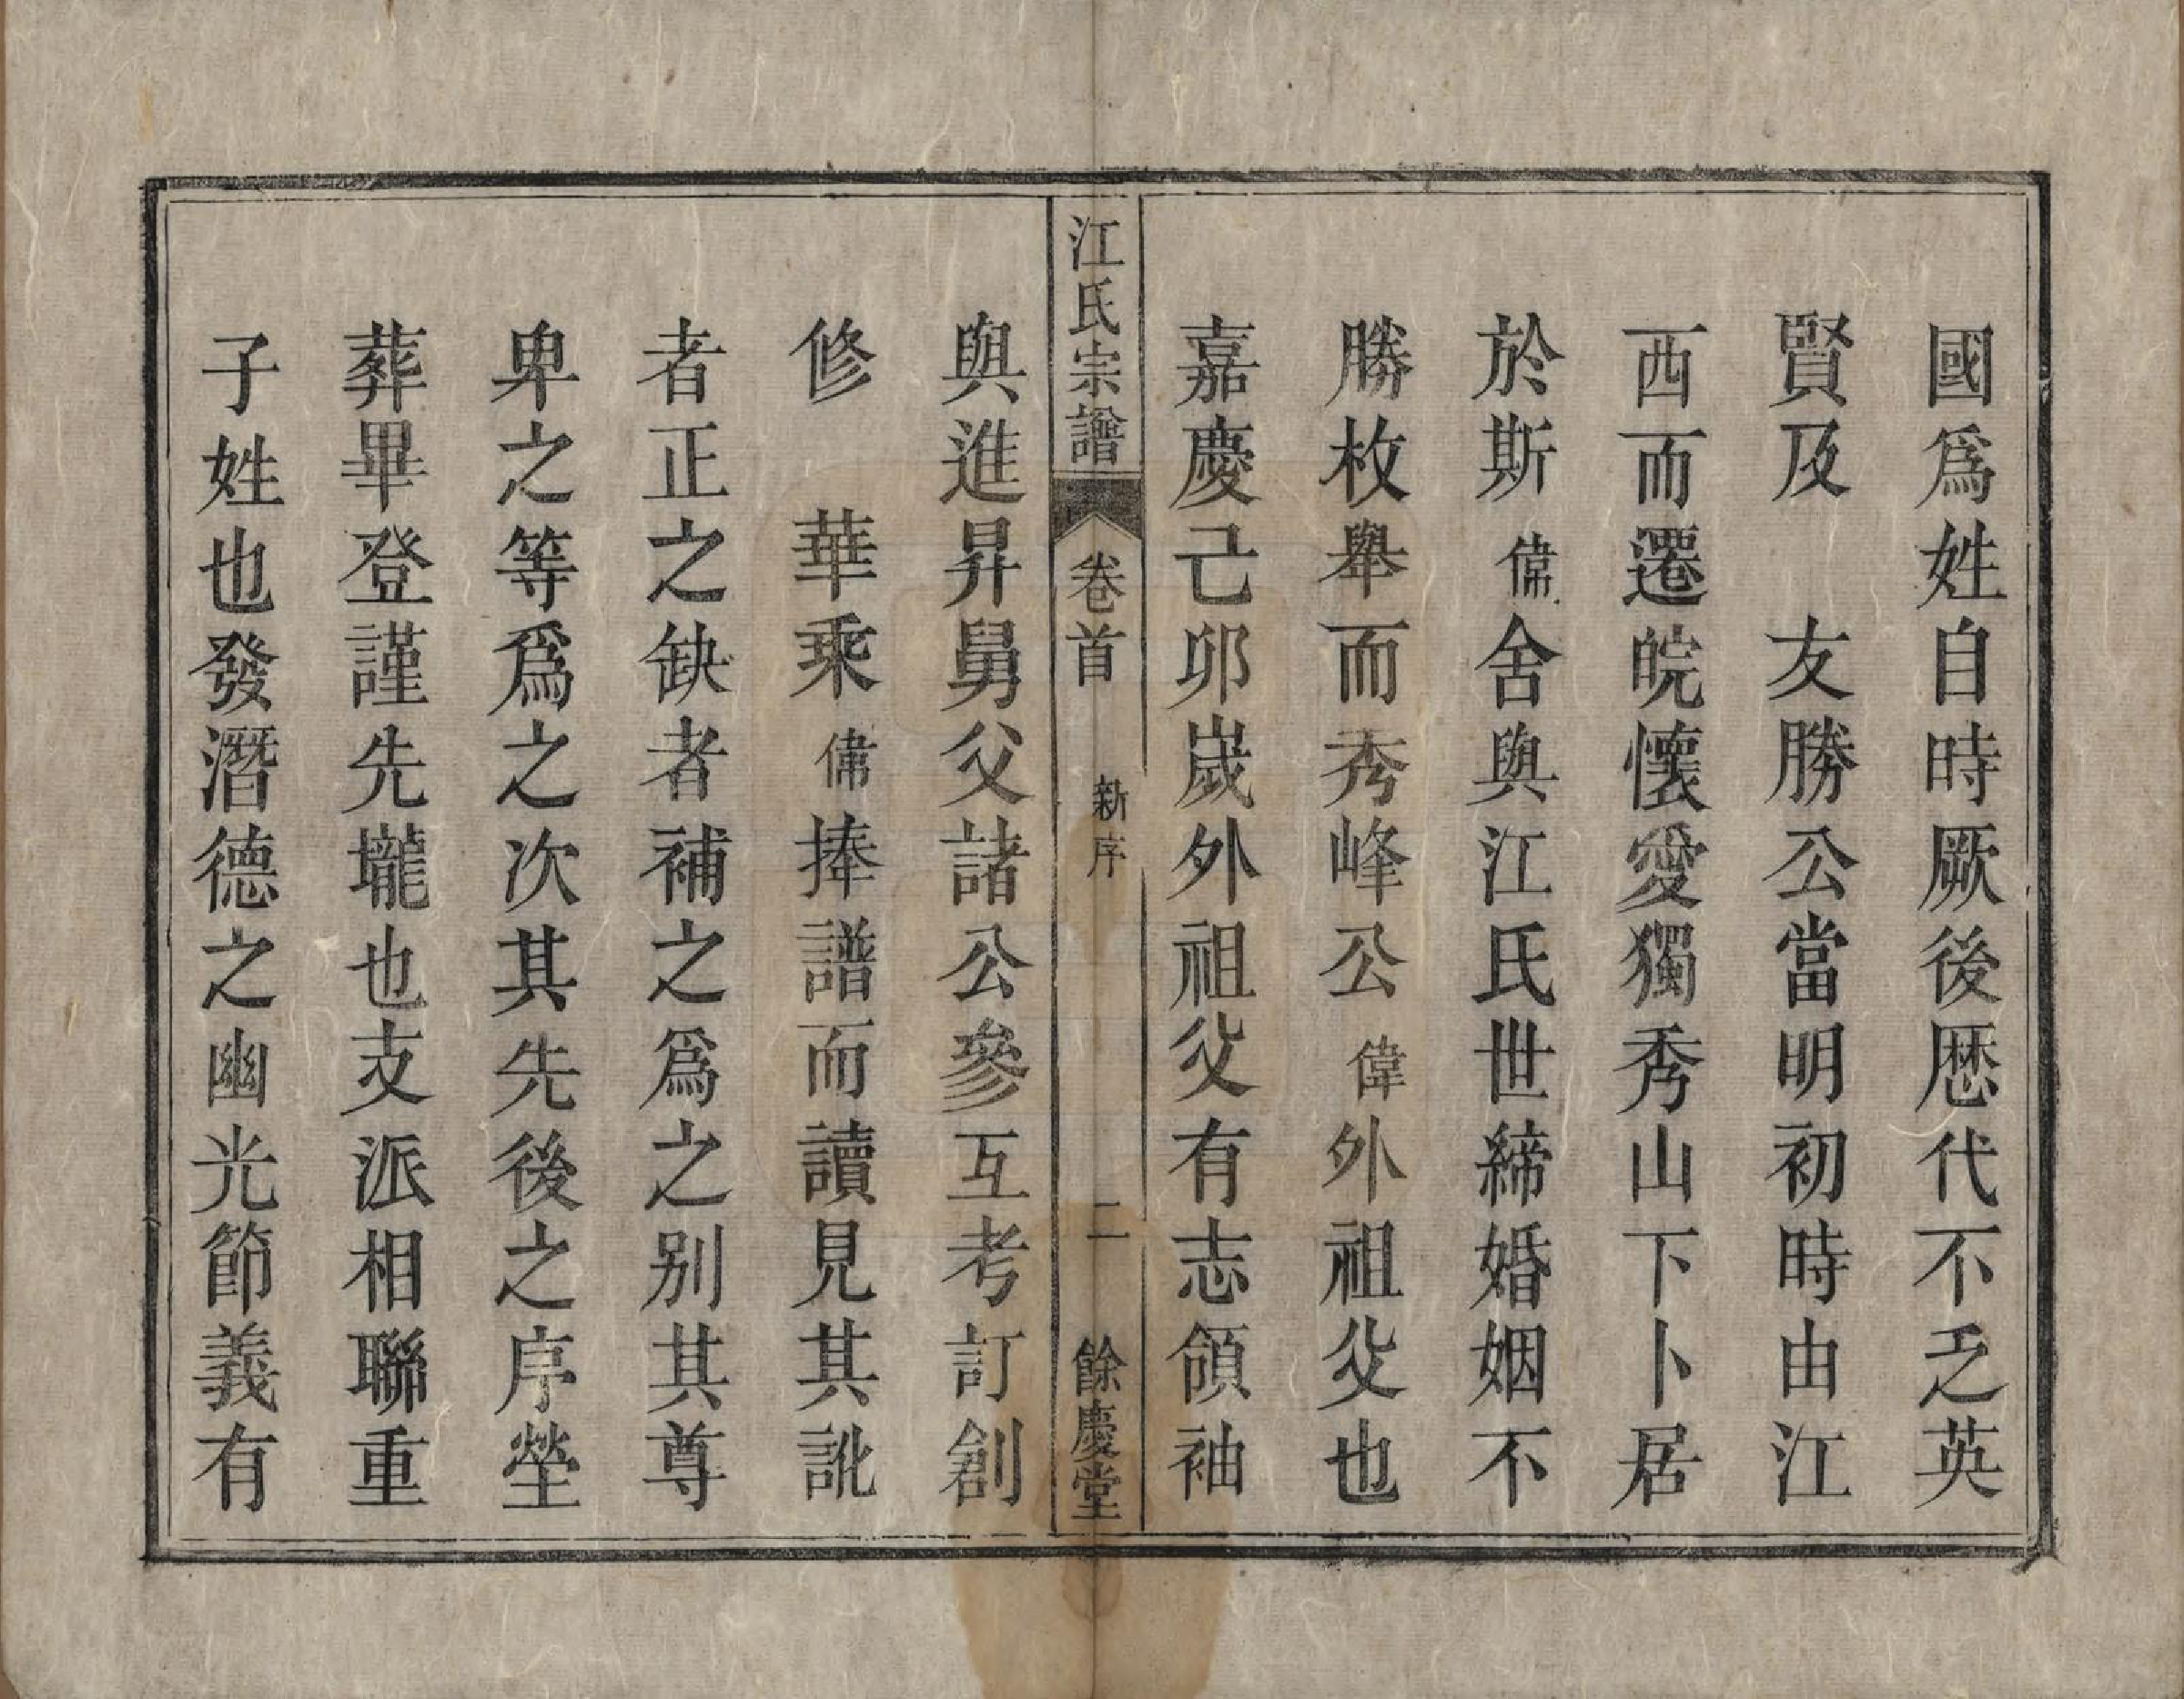 國爲姓自時厥後歴代不乏英
賢及　友勝公當明初時由江
西而遷皖懷愛獨秀山下卜居
於斯偉舍與江氏世締婚姻不
勝枚舉而秀峰公偉外祖父也
嘉慶己卯嵗外祖父有志領袖
江氏宗譜　卷首　新序　二　餘慶堂
與進昇舅父諸公參互考訂創
修　華乘偉捧譜而讀見其訛
者正之缺者補之爲之别其尊
卑之等爲之次其先後之序塋
葬畢登謹先壠也支派相聯重
子姓也發潛德之幽光節義有